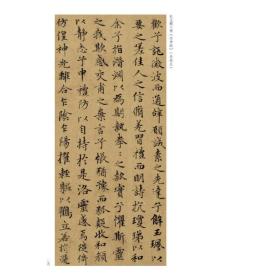 歡兮託微波而通辭願誠素之先達兮解玉珮以
要之嗟佳人之信脩羌習禮而明詩抗瓊珶以和
余兮指潛淵以為期執拳〻之款實兮懼斯靈
之我欺感交甫之棄言兮悵猶豫而狐疑收和顏
以靜志兮申禮防以自持於是洛靈感焉徙倚
彷徨神光離合乍陰乍陽擢輕軀以鶴立若將飛